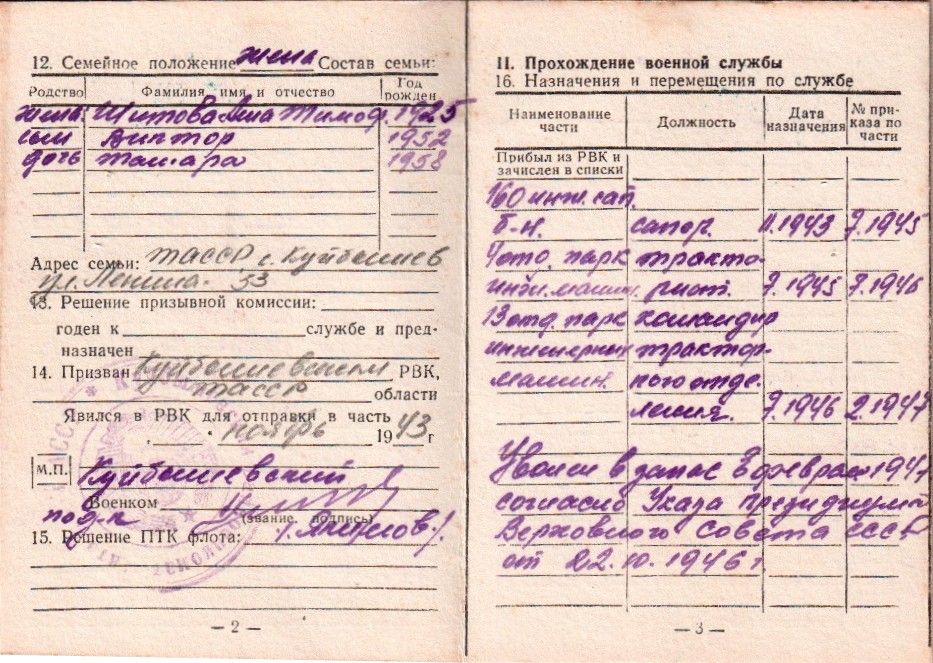 12. Семейное положение жена Состав семьи:
Родство Фамилия, имя и отчество Год рожден
жена Шитова Анна Тимоф. 1925
сын Виктор 1952
дочь Тамара 1958
Адрес семьи: ТАССР г. Куйбышев
ул. Ленина 53
13. Решение призывной комиссии:
годен к службе и пред-
назначен
14. Призван Куйбышевским РВК,
ТАССР области
Явился в РВК для отправки в часть
ноябрь 1943 г
М.П. Куйбышевский
Военком
п/п-к (звание, подпись)
15. Решение ПТК флота:
— 2 —
II. Прохождение военной службы
16. Назначения и перемещения по службе
Наименование части Должность Дата назначения № приказа по части
Прибыл из РВК и
зачислен в списки
160 инж. сап.
б-н. сапер. 11.1943 7.1945
4 отд. парк тракто-
инж. машин. рист. 7.1945 7.1946
13 отд. парк командир
инженерных трактор-
машин. ного отде-
ления. 7.1946 2.1947
Уволен в запас 8 феврал 1947
согласно Указа президиума
Верховного Совета СССР
от 22.10.1946 г
— 3 —